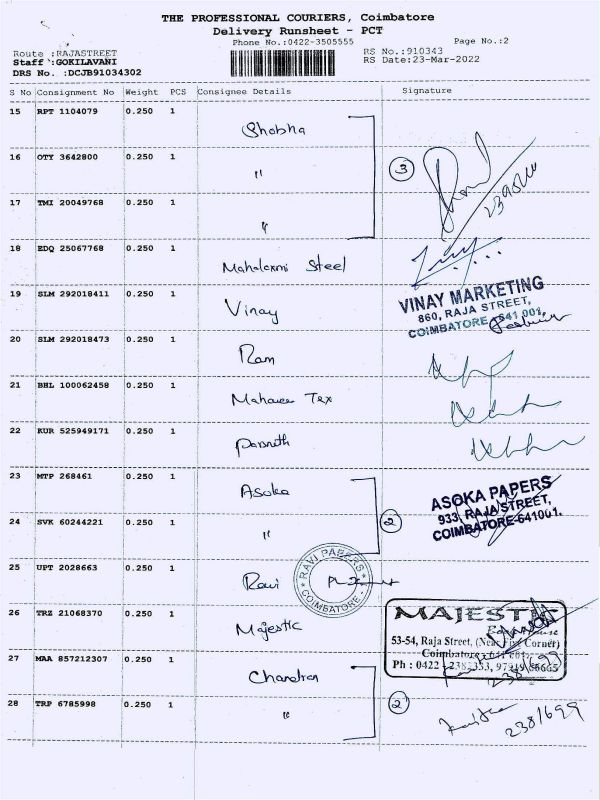 THE PROFESSIONAL COURIERS, Coimbatore
Delivery Runsheet - PCT
Phone No.:0422-3505555
Page No.:2
Route :RAJASTREET
RS No.:910343
Staff :GOKILAVANI
RS Date:23-Mar-2022
DRS No. :DCJB91034302
S No Consignment No Weight PCS Consignee Details Signature
15 RPT 1104079 0.250 1 Shobha
16 OTY 3642800 0.250 1 "
3
17 TMI 20049768 0.250 1 "
18 EDQ 25067768 0.250 1 Mahalaxmi Steel
19 SLM 292018411 0.250 1 Vinay
VINAY MARKETING
860, RAJA STREET,
COIMBATORE 641 001.
20 SLM 292018473 0.250 1 Ram
21 BHL 100062458 0.250 1 Tex
22 KUR 525949171 0.250 1
23 MTP 268461 0.250 1 Asoka
ASOKA PAPERS
933, RAJA STREET,
COIMBATORE-641001.
24 SVK 60244221 0.250 1 "
2
25 UPT 2028663 0.250 1 Ravi
RAVI PAPERS
COIMBATORE
26 TRZ 21068370 0.250 1 Majestic
MAJESTIC
53-54, Raja Street, Corner)
Coimbatore
Ph : 0422
27 MAA 857212307 0.250 1 Chandran
28 TRP 6785998 0.250 1 "
2
2381699